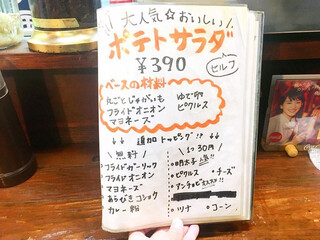 大人気☆おいしい!
ポテトサラダ
￥390
セルフ
ベースの材料
丸ごとじゃがいも ゆで卵
フライドオニオン ピクルス
マヨネーズ
↓↓ 追加トッピング!! ↓↓
\無料/
・フライドガーリック
・フライドオニオン
・マヨネーズ
・あらびきコショウ
・カレー粉
\1つ30円/
・明太子 人気!!
・ピクルス ・チーズ
・アンチョビ オススメ!!
・ツナ ・コーン